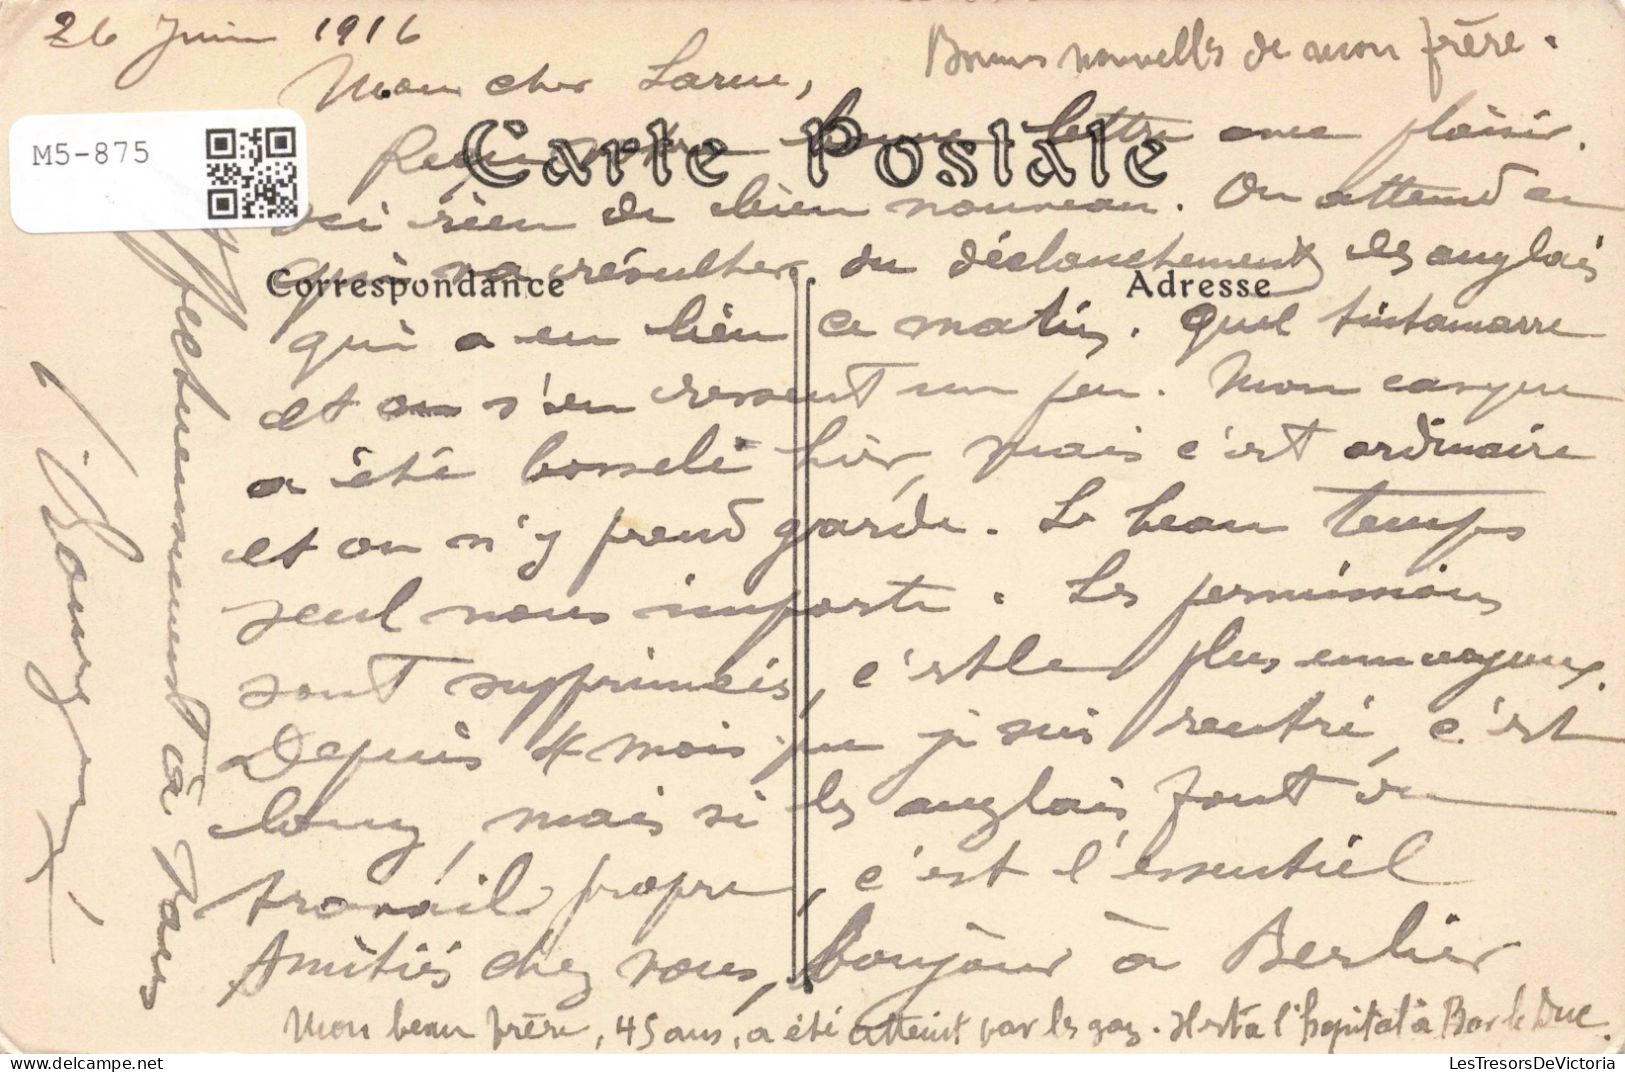 26 Juin 1916
Bonnes nouvelles de mon frère.
Mon cher Larue,
M5-875
Carte Postale
Reçu votre bonne lettre avec plaisir.
Ici rien de bien nouveau. On attend ce
Correspondance
Adresse
qui va résulter du déclanchement des anglais
qui a eu lieu ce matin. Quel tintamarre
et on s'en ressent un peu. Mon casque
a été bosselé hier, mais c'est ordinaire
et on n'y prend garde. Le beau temps
seul nous importe. Les permissions
sont supprimées, c'est le plus ennuyeux.
Depuis 4 mois que je suis rentré, c'est
long, mais si les anglais font du
travail propre, c'est l'essentiel
Amitiés chez vous, bonjour à Berlier
Mon beau frère, 45 ans, a été atteint par les gaz. Il est à l'hopital à Bar le Duc.
Affectueusement à vous
LesTresorsDeVictoria